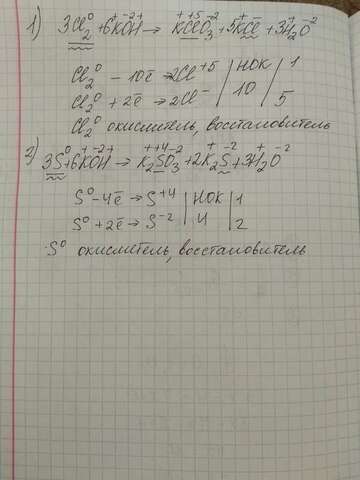 1) 3Cl₂⁰ + 6K⁺O⁻²H⁺ → K⁺Cl⁺⁵O₃⁻² + 5K⁺Cl⁻ + 3H₂⁺O⁻²
Cl₂⁰ – 10ē → 2Cl⁺⁵ | НОК | 1
Cl₂⁰ + 2ē → 2Cl⁻ | 10 | 5
Cl₂⁰ окислитель, восстановитель
2) 3S⁰ + 6K⁺O⁻²H⁺ → K₂⁺S⁺⁴O₃⁻² + 2K₂⁺S⁻² + 3H₂⁺O⁻²
S⁰ – 4ē → S⁺⁴ | НОК | 1
S⁰ + 2ē → S⁻² | 4 | 2
S⁰ окислитель, восстановитель